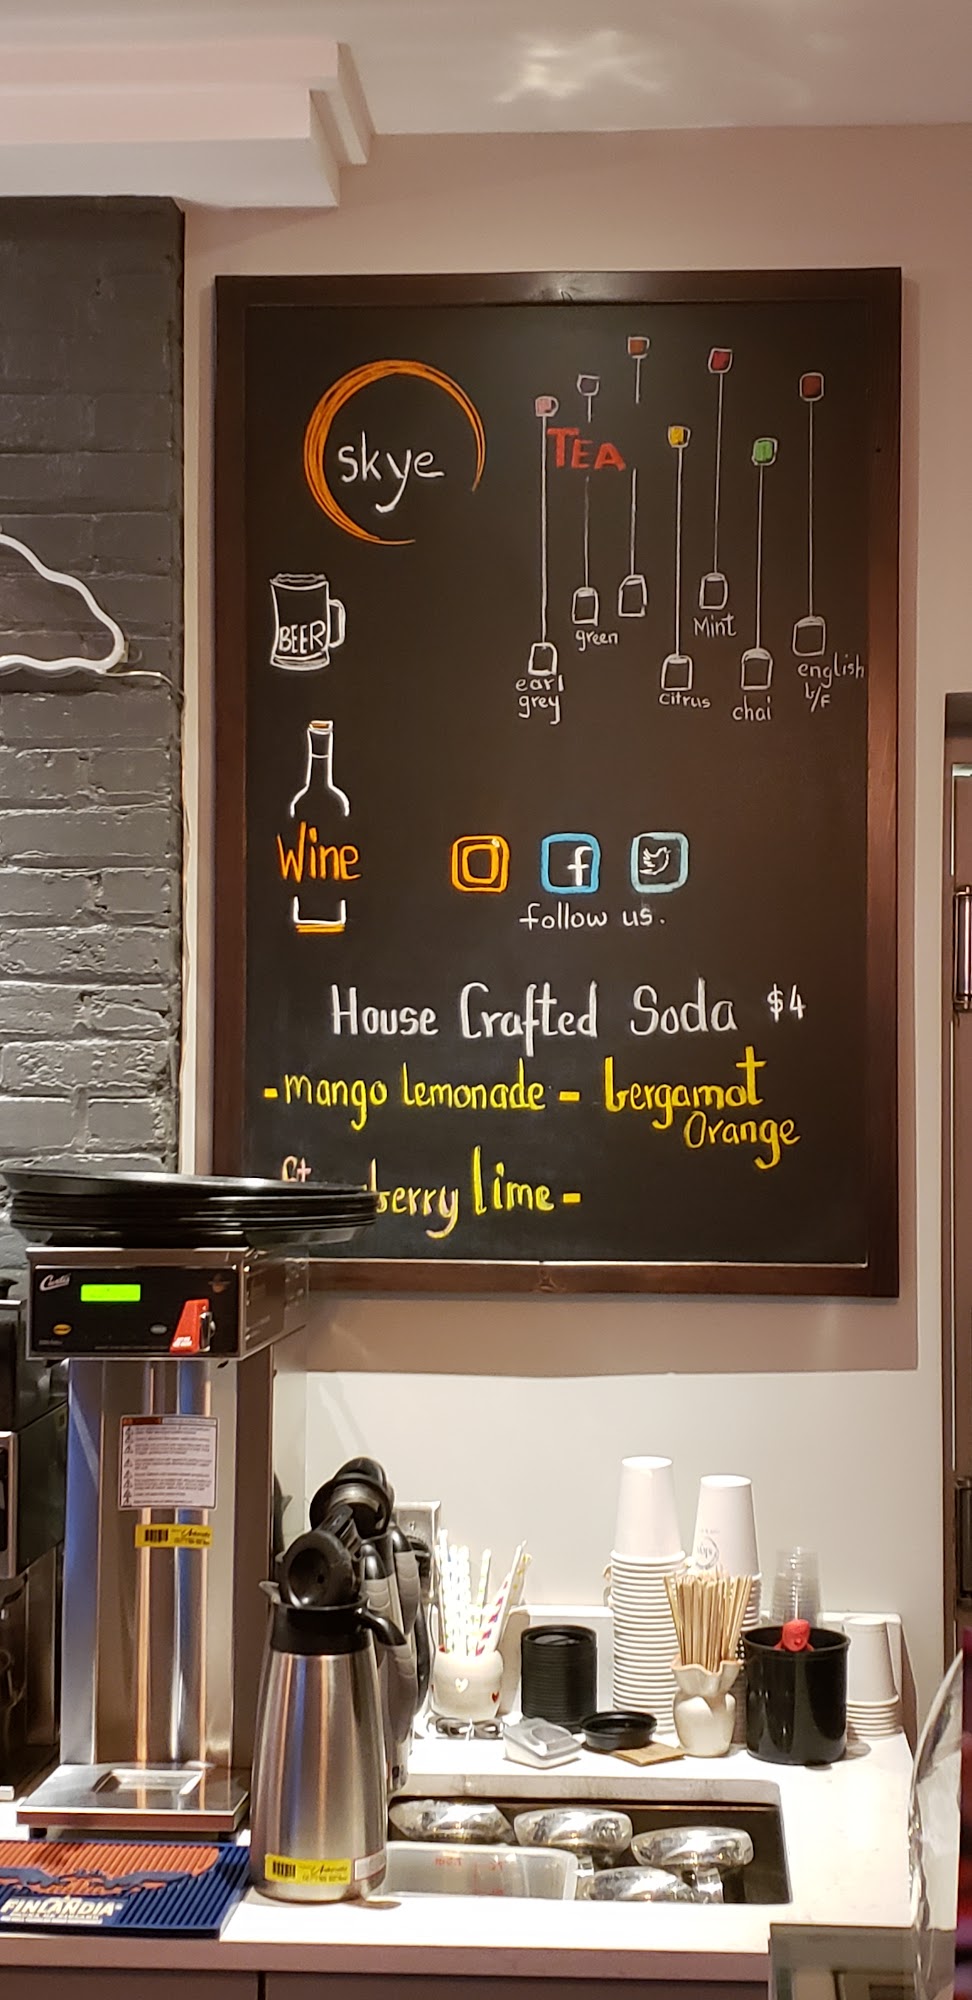 skye
TEA
BEER
green
Mint
earl
grey
citrus
chai
english
b/f
Wine
f
follow us.
House Crafted Soda $4
- mango lemonade - bergamot
Orange
berry lime -
Curtis
FINLANDIA